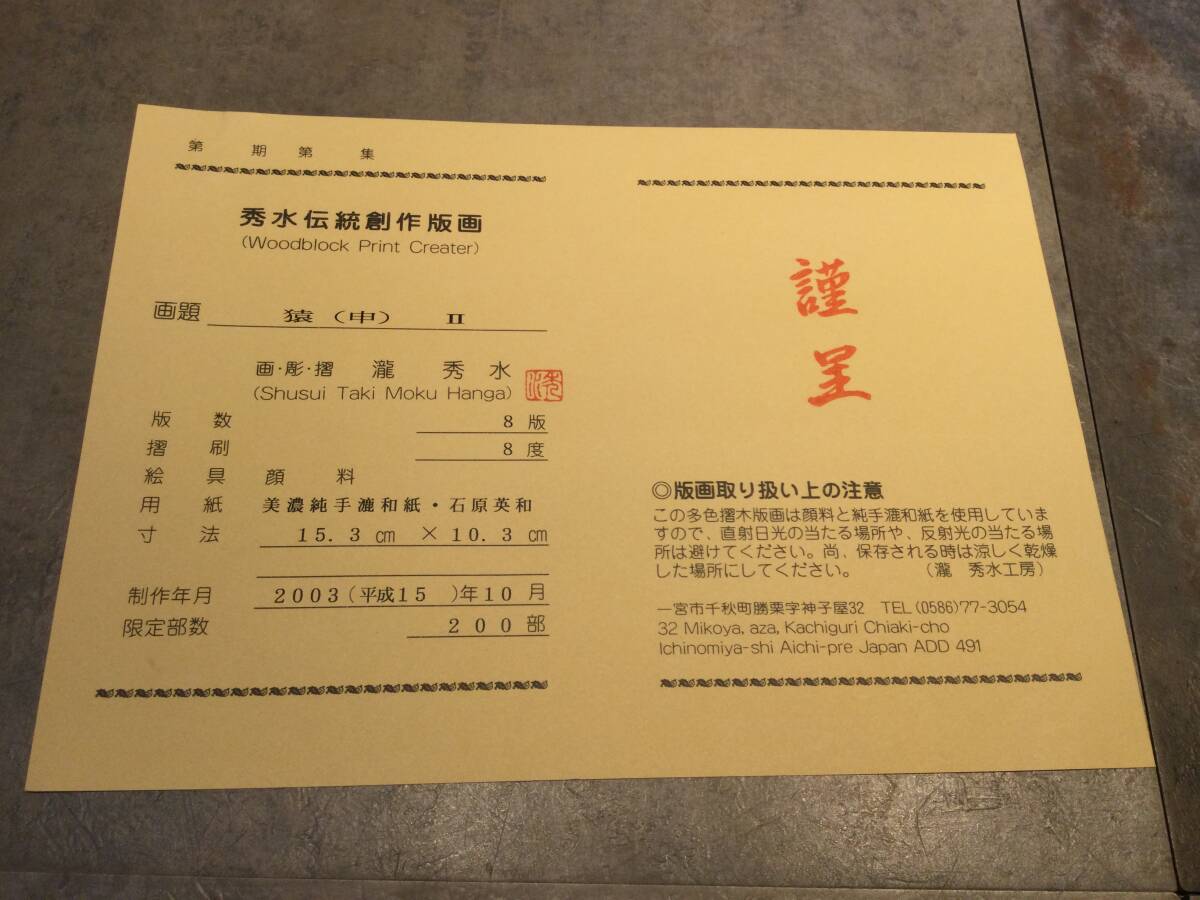 第　期第　集
秀水伝統創作版画
(Woodblock Print Creater)
画題　猿（申）　II
画・彫・摺　瀧　秀　水
(Shusui Taki Moku Hanga)
版　数　8 版
摺　刷　8 度
絵　具　顔　料
用　紙　美濃純手漉和紙・石原英和
寸　法　15.3 ㎝ × 10.3 ㎝
制作年月　2003(平成15　)年10月
限定部数　200部
謹
呈
◎版画取り扱い上の注意
この多色摺木版画は顔料と純手漉和紙を使用していま
すので、直射日光の当たる場所や、反射光の当たる場
所は避けてください。尚、保存される時は涼しく乾燥
した場所にしてください。　（瀧　秀水工房）
一宮市千秋町勝栗字神子屋32　TEL(0586)77-3054
32 Mikoya, aza, Kachiguri Chiaki-cho
Ichinomiya-shi Aichi-pre Japan ADD 491